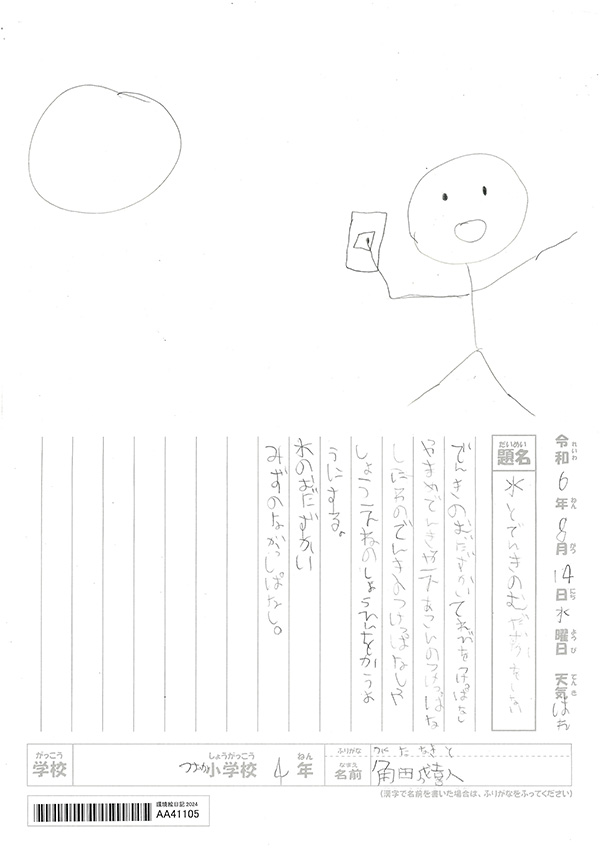 令和6年8月14日水曜日 天気はれ
題名 水とでんきのむだづかいをしない
でんきのむだづかいてれびをつけっぱなし
やまめでんきやエアコンのつけっぱな
しだわのでんきのつけっぱなしや
しょうエネのしょうひんをかうよ
うにする。
水のむだずかい
みずのながしっぱなし。
がっこう
学校
しょうがっこう
小学校
ねん
4年
ふりがな
なまえ
名前 角田
(漢字で名前を書いた場合は、ふりがなをふってください)
環境絵日記2024
AA41105